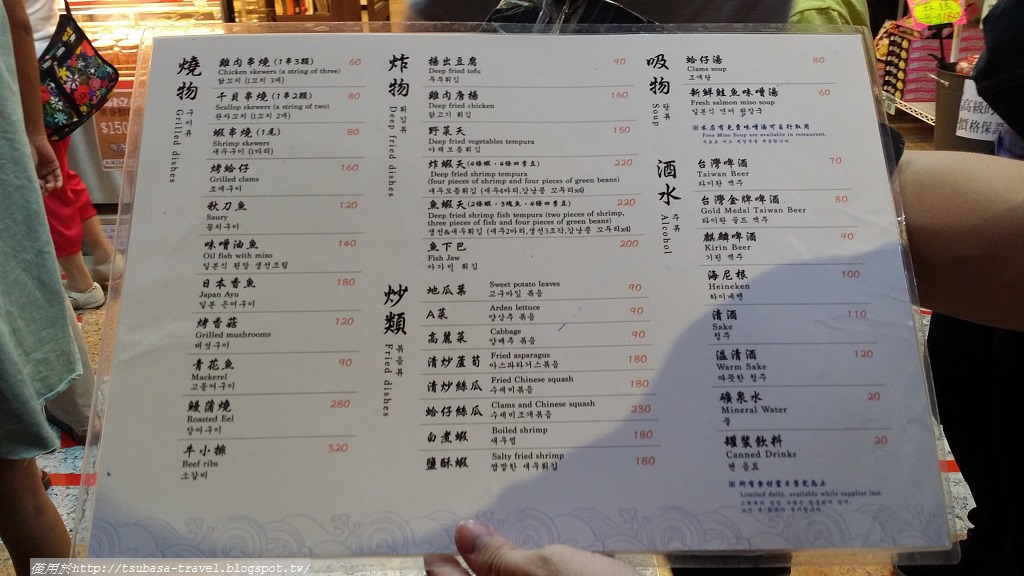 燒物 구이류 Grilled dishes
雞肉串燒(1串3顆) 60
Chicken skewers (a string of three)
닭꼬치 (1꼬치 3개)
干貝串燒(1串2顆) 80
Scallop skewers (a string of two)
관자꼬치 (1꼬치 2개)
蝦串燒(1尾) 80
Shrimp skewers
새우구이 (1마리)
烤蛤仔 160
Grilled clams
조개구이
秋刀魚 120
Saury
꽁치구이
味噌油魚 140
Oil fish with miso
일본식 된장 생선조림
日本香魚 180
Japan Ayu
일본 은어구이
烤香菇 120
Grilled mushrooms
버섯구이
青花魚 90
Mackerel
고등어구이
鰻蒲燒 280
Roasted Eel
장어구이
牛小排 320
Beef ribs
소갈비
炸物 튀김류 Deep fried dishes
揚出豆腐 90
Deep fried tofu
두부튀김
雞肉唐揚 160
Deep fried chicken
닭고기 튀김
野菜天 150
Deep fried vegetables tempura
야채모듬튀김
炸蝦天(4條蝦·4條四季豆) 220
Deep fried shrimp tempura
(four pieces of shrimp and four pieces of green beans)
새우모듬튀김 (새우4마리,강낭콩 꼬투리x4)
魚蝦天(2條蝦·3塊魚·4條四季豆) 220
Deep fried shrimp fish tempura (two pieces of shrimp,
three pieces of fish and four pieces of green beans)
생선&새우튀김 (새우2마리,생선3조각,강낭콩 꼬투리x4)
魚下巴 200
Fish Jaw
아가미 튀김
炒類 볶음류 Fried dishes
地瓜葉 Sweet potato leaves 90
고구마잎 볶음
A菜 Arden lettuce 90
양상추 볶음
高麗菜 Cabbage 90
양배추 볶음
清炒蘆筍 Fried asparagus 180
아스파라거스볶음
清炒絲瓜 Fried Chinese squash 180
수세미볶음
蛤仔絲瓜 Clams and Chinese squash 230
수세미조개볶음
白煮蝦 Boiled shrimp 180
새우찜
鹽酥蝦 Salty fried shrimp 180
짭짤한 새우튀김
吸物 탕류 Soup
蛤仔湯 80
Clams soup
조개탕
新鮮鮭魚味噌湯 60
Fresh salmon miso soup
일본식 연어 된장국
※本店有免費味噌湯可自行取用
Free Miso Soup are available in restaurant.
酒水 주류 Alcohol
台灣啤酒 70
Taiwan Beer
타이완 맥주
台灣金牌啤酒 80
Gold Medal Taiwan Beer
타이완 골드 맥주
麒麟啤酒 90
Kirin Beer
기린 맥주
海尼根 100
Heineken
하이네켄
清酒 110
Sake
청주
溫清酒 120
Warm Sake
따뜻한 청주
礦泉水 20
Mineral Water
물
罐裝飲料 20
Canned Drinks
캔 음료
※所有食材當日售完為止
Limited daily, available while supplies last.
$150
價格保證
僅用於http://tsubasa-travel.blogspot.tw/